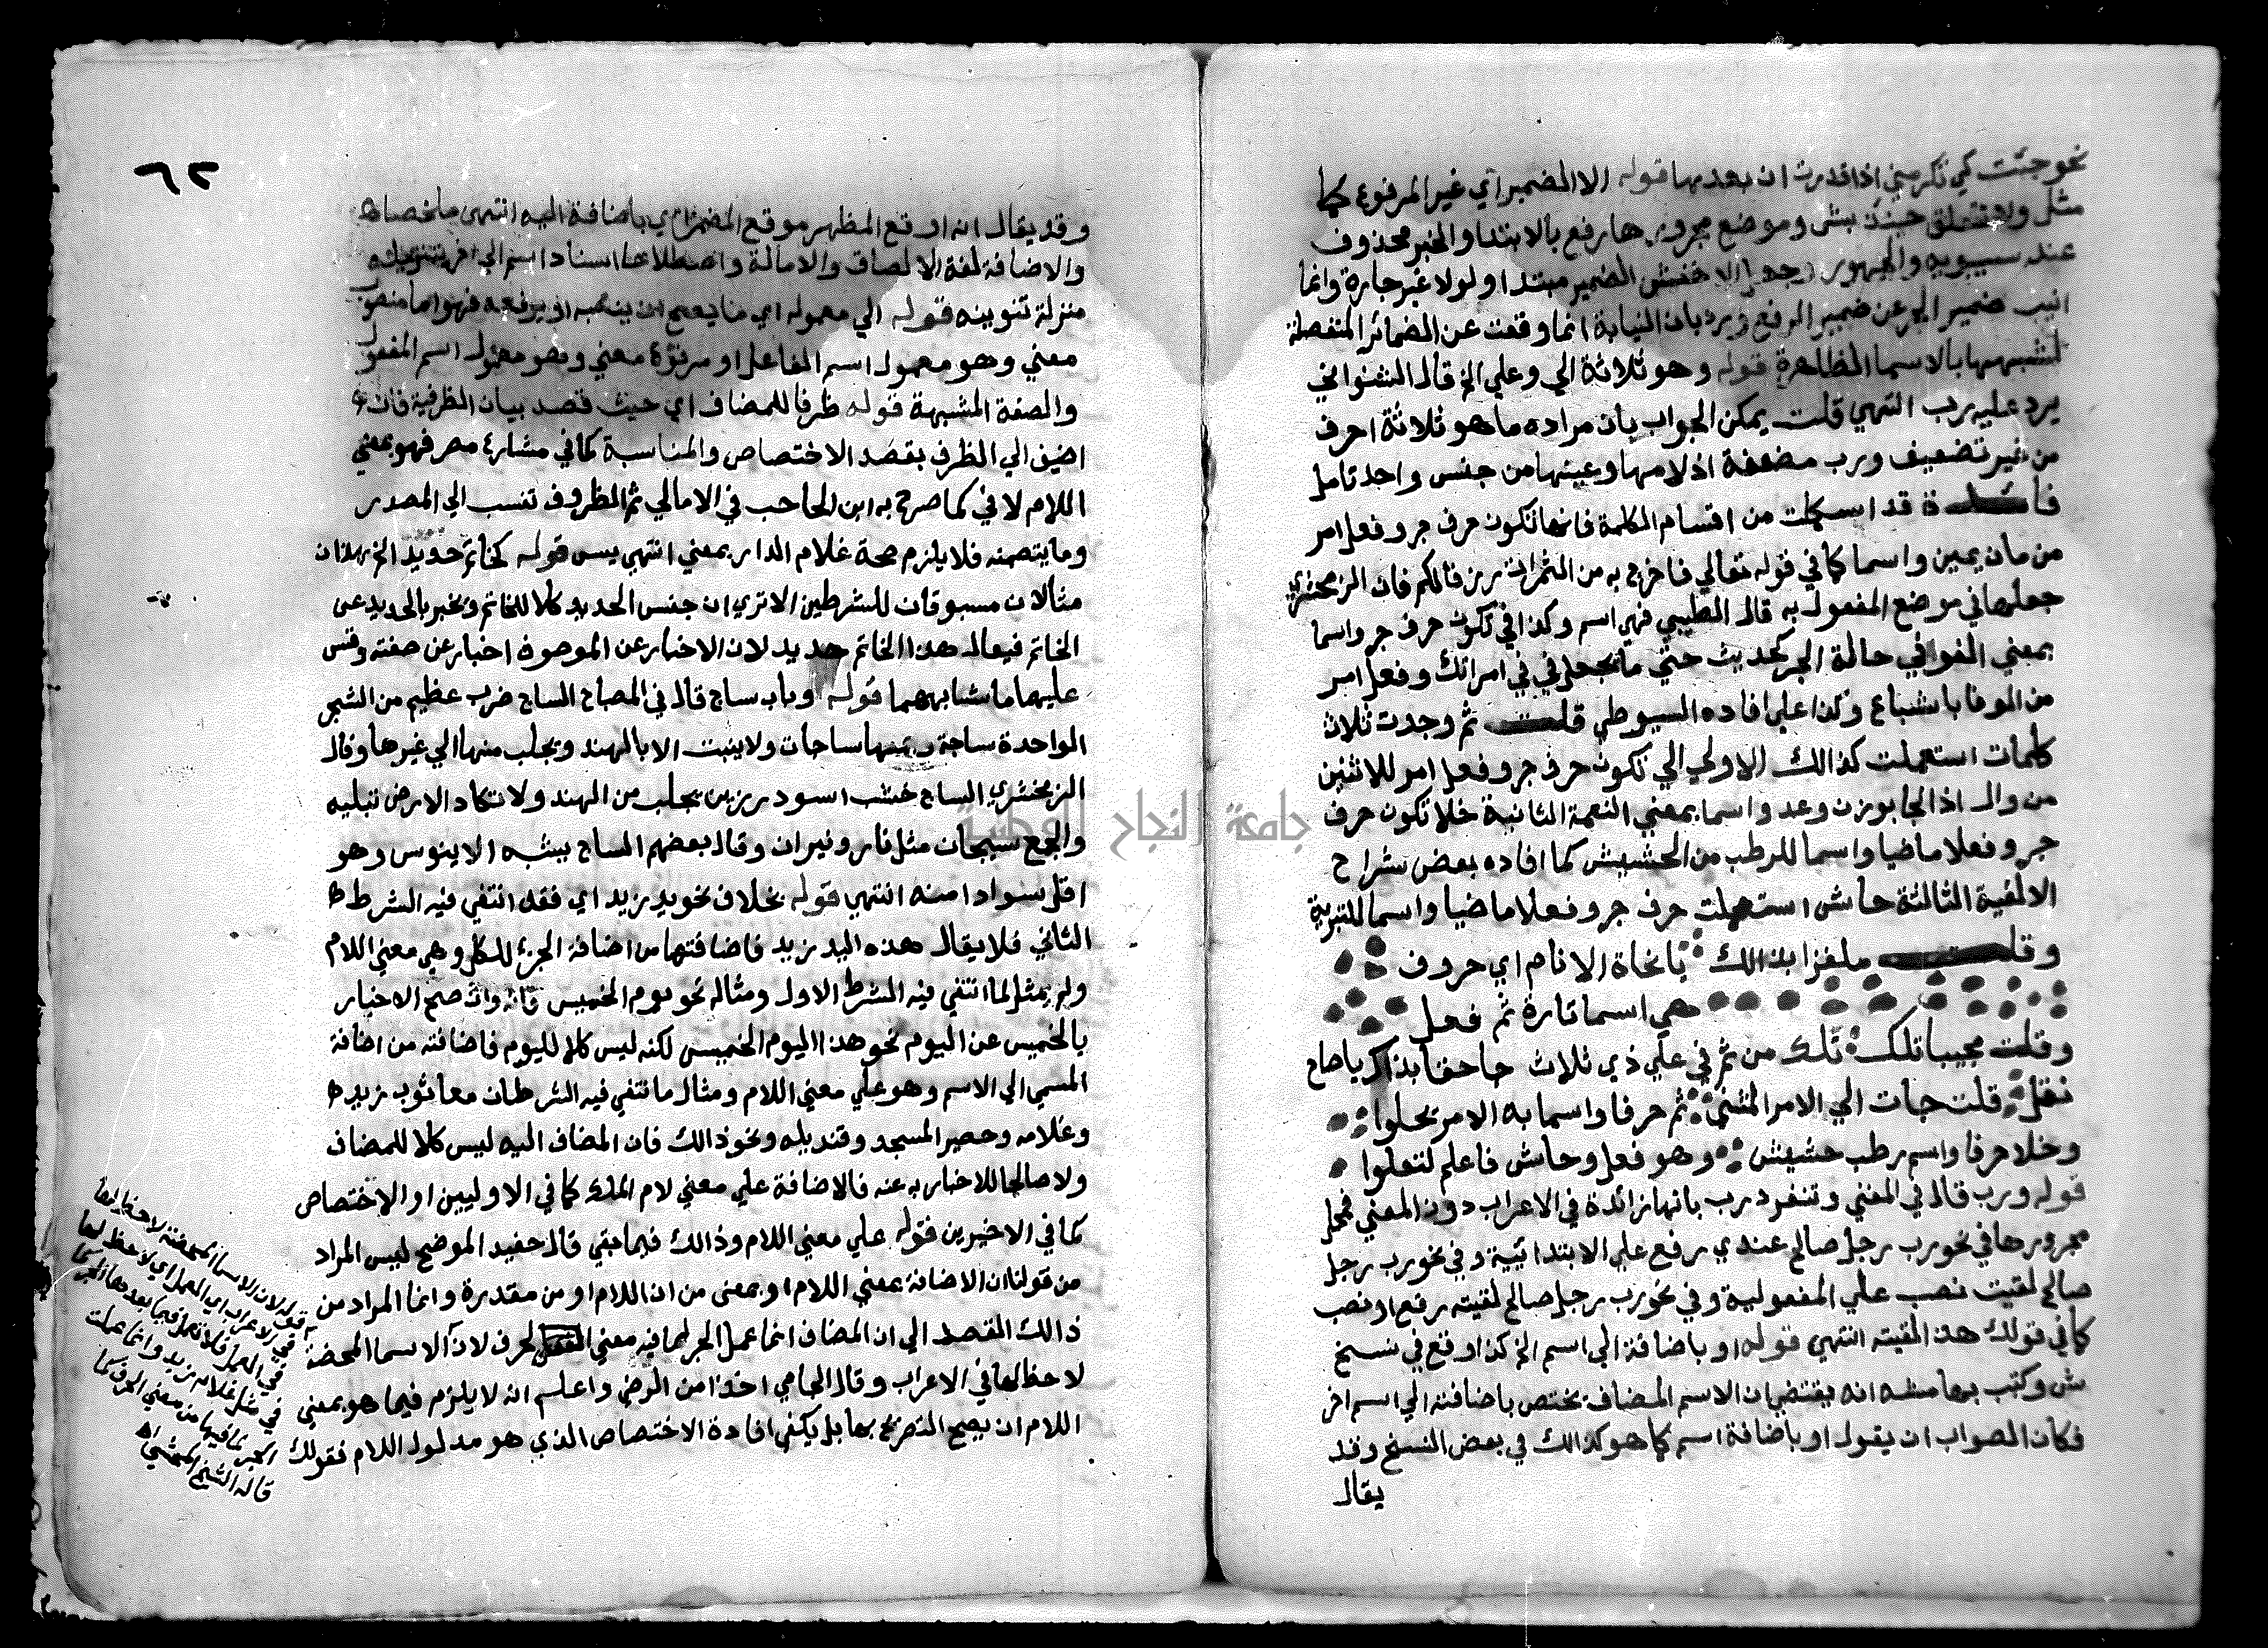 نحو جئت كي تكرمني اذا قدرت ان بعدها قوله الا الضمير اي غير المرفوع كما
مثل ولا تتعلق حينئذ بشي وموضع مجرورها رفع بالابتدا والخبر محذوف
عند سيبويه والجمهور وجعل الاخفش الضمير مبتدا ولولا غير جارة وانما
انيب ضمير الجر عن ضمير الرفع ويرد بان النيابة انما وقعت عن الضمائر المنفصلة
لشبهها بالاسما الظاهرة قوله وهو ثلاثة الي وعلي الخ قال الشنواني
يرد عليه رب انتهي قلت يمكن الجواب بان مراده ما هو ثلاثة احرف
من غير تضعيف ورب مضعفة اذ لامها وعينها من جنس واحد تامل
فائدة قد استكملت من اقسام الكلمة فانها تكون حرف جر وفعل امر
من مان يمين واسما كما في قوله تعالي فاخرج به من الثمرات رزقا لكم فان الزمخشري
جعلها في موضع المفعول به قال الطيبي فهي اسم وكذا في تكون حرف جر واسما
بمعني الفم في حالة الجر كحديث حتي ما تجعل في في امراتك وفعل امر
من الوفا باشباع وكذا علي افاده السيوطي قلت ثم وجدت ثلاث
كلمات استعملت كذالك الاولي الي تكون حرف جر وفعل امر للاثنين
من وال اذا لجا بوزن وعد واسما بمعني النعمة الثانية خلا تكون حرف
جر وفعلا ماضيا واسما للرطب من الحشيش كما افاده بعض شراح
الالفية الثالثة حاش استعملت حرف جر وفعلا ماضيا واسما للتنزيه
وقلت ملغزا بذالك يا نحاة الانام اي حروف
هي اسما تارة ثم فعل
وقلت مجيبا تلك تلك من ثم في علي ذي ثلاث جا حقا بذاك يا صاح
نقل قلت جات الي الامر المثني ثم حرفا واسما به الامر يحلوا
وخلا حرفا واسم رطب حشيش وهو فعل وحاش فاعلم لتعلوا
قوله ورب قال في المغني وتنفرد رب بانها زائدة في الاعراب دون المعني فمحل
مجرورها في نحو رب رجل صالح عندي رفع علي الابتدائية وفي نحو رب رجل
صالح لقيت نصب علي المفعولية وفي نحو رب رجل صالح لقيته رفع او نصب
كما في قولك هذا لقيته انتهي قوله او باضافة الي اسم الخ كذا وقع في نسخ
ش وكتب بهامشه انه يقتضي ان الاسم المضاف يختص باضافته الي اسم اخر
فكان الصواب ان يقول او باضافة اسم كما هو كذالك في بعض النسخ وقد
يقال
٦٢
وقد يقال انه اوقع المظهر موقع المضمر اي باضافة اليه انتهي ملخصا ه
والاضافة لغة الالصاق والامالة واصطلاحا اسناد اسم الي اخر بتنزيله
منزلة تنوينه قوله الي معموله اي ما يصح ان ينصبه او يرفعه فهو اما منصوب
معني وهو معمول اسم الفاعل او مرفوع معني وهو معمول اسم المفعول
والصفة المشبهة قوله ظرفا للمضاف اي حيث قصد بيان الظرفية فان
اضيف الي الظرف بقصد الاختصاص والمناسبة كما في مشارع مصر فهو بمعني
اللام لا في كما صرح به ابن الحاجب في الامالي ثم الظروف تنسب الي المصدر
وما يتضمنه فلا يلزم صحة غلام الدار بمعني انتهي يس قوله كخاتم حديد الخ هذان
مثالان مسبوقان للشرطين الا تري ان جنس الحديد كلا للخاتم ويخبر بالحديد عن
الخاتم فيقال هذا الخاتم حديد لان الاخبار عن الموصوف اخبار عن صفته وقس
عليها ما شابههما قوله وباب ساج قال في المصباح الساج ضرب عظيم من الشجر
الواحدة ساجة وجمعها ساجات ولا ينبت الا بالهند ويجلب منها الي غيرها وقال
الزمخشري الساج خشب اسود رزين يجلب من الهند ولا تكاد الارض تبليه
والجمع سيجان مثل نار ونيران وقال بعضهم الساج يشبه الابنوس وهو
اقل سوادا منه انتهي قوله بخلاف نحو يد زيد اي فقد انتفي فيه الشرط ه
الثاني فلا يقال هذه اليد زيد فاضافتها من اضافة الجزء للكل وهي معني اللام
ولم يمثل لما انتفي فيه الشرط الاول ومثاله نحو يوم الخميس فانه وان صح الاخبار
بالخميس عن اليوم نحو هذا اليوم الخميس لكنه ليس كلا لليوم فاضافته من اضافة
المسمي الي الاسم وهو علي معني اللام ومثال ما تنتفي فيه الشرطان معا ثوب زيد ه
وغلامه وحصير المسجد وقنديله ونحو ذالك فان المضاف اليه ليس كلا للمضاف
ولا صالحا للاخبار به عنه فالاضافة علي معني لام الملك كما في الاوليين او الاختصاص
كما في الاخيرين قوله علي معني اللام وذالك فيما بقي قال حفيد الموضح ليس المراد
من قولنا ان الاضافة بمعني اللام او بمعنى من ان اللام او من مقدرة وانما المراد من
ذالك القصد الي ان المضاف انما عمل الجر لما فيه معني الحرف لان الاسما المحضة
لا حظ لها في الاعراب وقال الجامي اخذا من الرضي واعلم انه لا يلزم فيما هو بمعني
اللام ان يصح التصريح بها بل يكفي افادة الاختصاص الذي هو مدلول اللام فقولك
قوله لان الاسما المحضة لا حظ لها
في الاعراب اي العمل اي لا حظ لها
في العمل فلا تعمل فيما بعدها الجر كما
في مثل غلام زيد وانما عملت
الجر لما فيها من معني الحرف كما
قاله الشيخ الحبشي اه
جامعة النجاح الوطنية